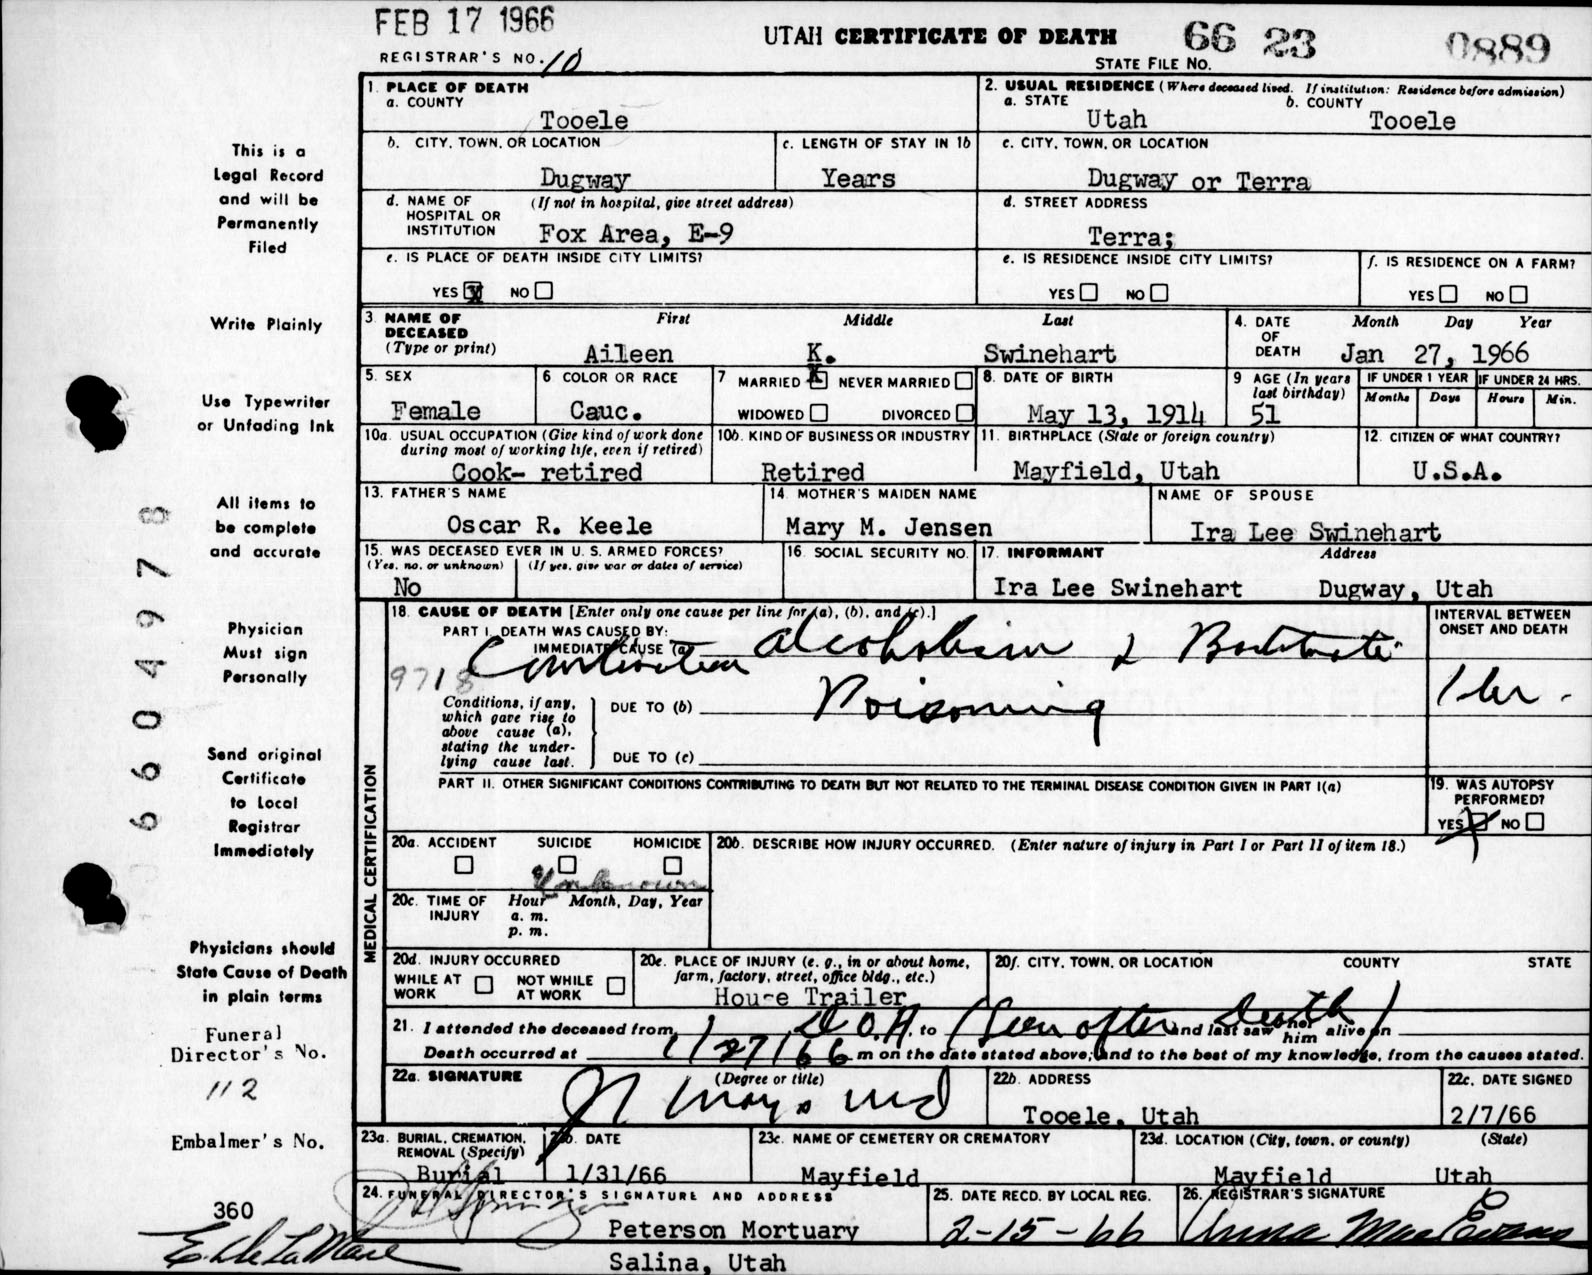 FEB 17 1966
UTAH CERTIFICATE OF DEATH 66 23 0889
REGISTRAR'S NO. 10
STATE FILE NO.
This is a
Legal Record
and will be
Permanently
Filed
Write Plainly
Use Typewriter
or Unfading Ink
All items to
be complete
and accurate
Physician
Must sign
Personally
Send original
Certificate
to Local
Registrar
Immediately
Physicians should
State Cause of Death
in plain terms
Funeral
Director's No.
112
Embalmer's No.
360
E. De La Mare
66 04978
1. PLACE OF DEATH
a. COUNTY
Tooele
2. USUAL RESIDENCE (Where deceased lived. If institution: Residence before admission)
a. STATE b. COUNTY
Utah Tooele
b. CITY, TOWN, OR LOCATION
Dugway
c. LENGTH OF STAY IN 1b
Years
c. CITY, TOWN, OR LOCATION
Dugway or Terra
d. NAME OF HOSPITAL OR INSTITUTION (If not in hospital, give street address)
Fox Area, E-9
d. STREET ADDRESS
Terra;
e. IS PLACE OF DEATH INSIDE CITY LIMITS?
YES X NO
e. IS RESIDENCE INSIDE CITY LIMITS?
YES NO
f. IS RESIDENCE ON A FARM?
YES NO
3. NAME OF DECEASED (Type or print)
First Middle Last
Aileen K. Swinehart
4. DATE OF DEATH Month Day Year
Jan 27, 1966
5. SEX
Female
6 COLOR OR RACE
Cauc.
7 MARRIED X NEVER MARRIED
WIDOWED DIVORCED
8. DATE OF BIRTH
May 13, 1914
9 AGE (In years last birthday)
51
IF UNDER 1 YEAR IF UNDER 24 HRS.
Months Days Hours Min.
10a. USUAL OCCUPATION (Give kind of work done during most of working life, even if retired)
Cook- retired
10b. KIND OF BUSINESS OR INDUSTRY
Retired
11. BIRTHPLACE (State or foreign country)
Mayfield, Utah
12. CITIZEN OF WHAT COUNTRY?
U.S.A.
13. FATHER'S NAME
Oscar R. Keele
14. MOTHER'S MAIDEN NAME
Mary M. Jensen
NAME OF SPOUSE
Ira Lee Swinehart
15. WAS DECEASED EVER IN U. S. ARMED FORCES?
(Yes, no, or unknown) (If yes, give war or dates of service)
No
16. SOCIAL SECURITY NO.
17. INFORMANT Address
Ira Lee Swinehart Dugway, Utah
MEDICAL CERTIFICATION
18. CAUSE OF DEATH [Enter only one cause per line for (a), (b), and (c).]
PART I. DEATH WAS CAUSED BY:
IMMEDIATE CAUSE (a)
Combination alcoholism & Barbiturate
9718
Conditions, if any, which gave rise to above cause (a), stating the underlying cause last.
DUE TO (b)
Poisoning
DUE TO (c)
INTERVAL BETWEEN ONSET AND DEATH
1 hr.
PART II. OTHER SIGNIFICANT CONDITIONS CONTRIBUTING TO DEATH BUT NOT RELATED TO THE TERMINAL DISEASE CONDITION GIVEN IN PART I(a)
19. WAS AUTOPSY PERFORMED?
YES X NO
20a. ACCIDENT SUICIDE HOMICIDE
Unknown
20b. DESCRIBE HOW INJURY OCCURRED. (Enter nature of injury in Part I or Part II of item 18.)
20c. TIME OF INJURY Hour Month, Day, Year
a. m.
p. m.
20d. INJURY OCCURRED
WHILE AT WORK NOT WHILE AT WORK
20e. PLACE OF INJURY (e. g., in or about home, farm, factory, street, office bldg., etc.)
House Trailer
20f. CITY, TOWN, OR LOCATION COUNTY STATE
21. I attended the deceased from D.O.A. to (Seen after death) and last saw her him alive on
Death occurred at 1/27/66 m on the date stated above; and to the best of my knowledge, from the causes stated.
22a. SIGNATURE (Degree or title)
MD
22b. ADDRESS
Tooele, Utah
22c. DATE SIGNED
2/7/66
23a. BURIAL, CREMATION, REMOVAL (Specify)
Burial
23b. DATE
1/31/66
23c. NAME OF CEMETERY OR CREMATORY
Mayfield
23d. LOCATION (City, town, or county) (State)
Mayfield Utah
24. FUNERAL DIRECTOR'S SIGNATURE AND ADDRESS
Peterson Mortuary
Salina, Utah
25. DATE RECD. BY LOCAL REG.
2-15-66
26. REGISTRAR'S SIGNATURE
Anna Mae Evans